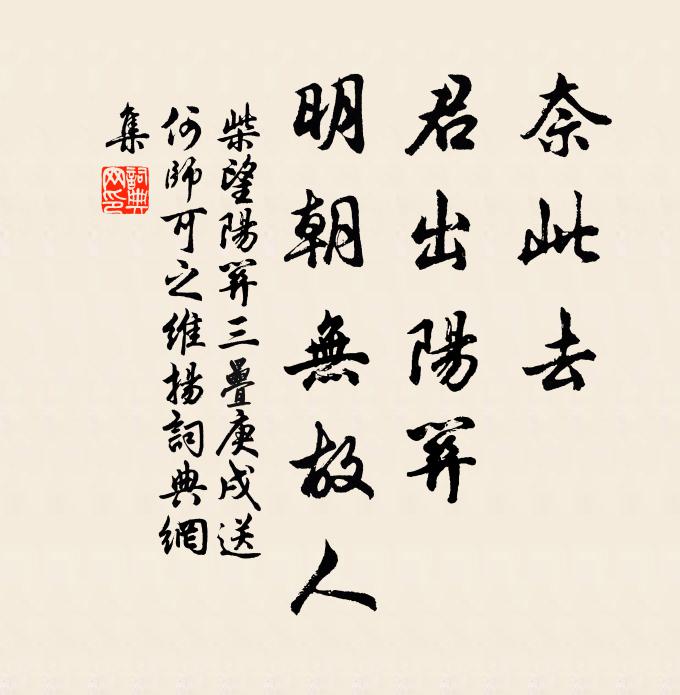 奈此去
君出陽関
明朝無故人
柴望陽関三疊庚戌送
何師可之維揚詞典網
集
詞典
網印